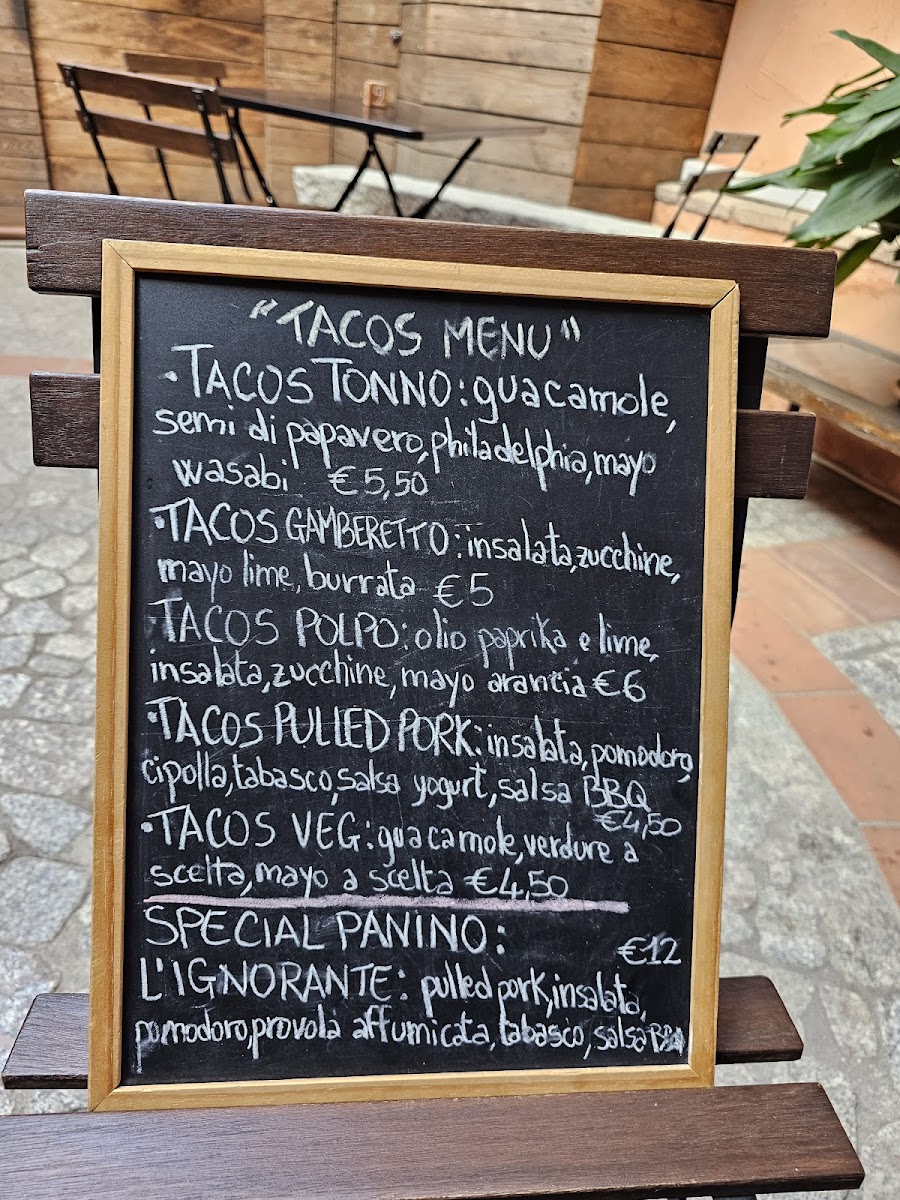 "TACOS MENU"
·TACOS TONNO: guacamole,
semi di papavero, philadelphia, mayo
wasabi €5,50
·TACOS GAMBERETTO: insalata, zucchine,
mayo lime, burrata €5
·TACOS POLPO: olio paprika e lime,
insalata, zucchine, mayo arancia €6
·TACOS PULLED PORK: insalata, pomodoro,
cipolla, tabasco, salsa yogurt, salsa BBQ
€4,50
·TACOS VEG: guacamole, verdure a
scelta, mayo a scelta €4,50
SPECIAL PANINO:
€12
L'IGNORANTE: pulled pork, insalata,
pomodoro, provola affumicata, tabasco, salsa BBQ